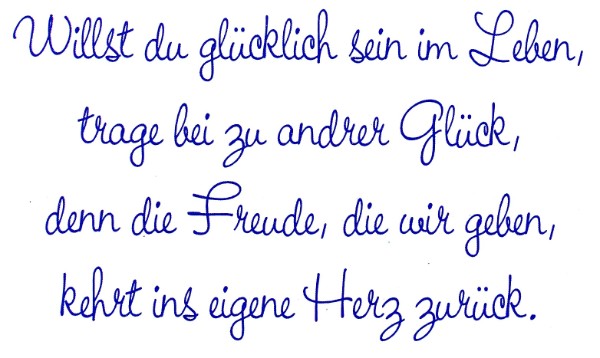 Willst du glücklich sein im Leben,
trage bei zu andrer Glück,
denn die Freude, die wir geben,
kehrt ins eigene Herz zurück.